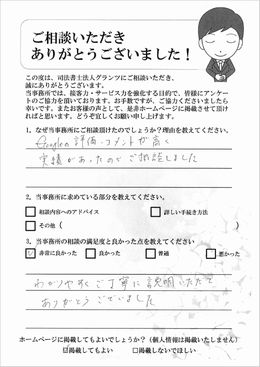 ご相談いただき
ありがとうございました！
この度は、司法書士法人グランツにご相談いただき、
誠にありがとうございます。
当事務所では、接客力・サービス力を強化する目的で、皆様にアンケー
トのご協力を頂いております。お手数ですが、ご協力くださいましたら
幸いです。またお客様の声として、是非ホームページに掲載させて頂け
ればと思います。どうぞ宜しくお願い申し上げます。
1. なぜ当事務所にご相談頂けたのでしょうか？理由を教えてください。
Googleの評価・コメントが高く
実績があったのでご相談しました
2. 当事務所に求めている部分を教えてください。
□相談内容へのアドバイス □詳しい手続き方法
□その他（ ）
3. 当事務所の相談の満足度と良かった点を教えてください。
☑非常に良かった □良かった □普通 □悪かった
わかりやすくご丁寧に説明いただて
ありがとうございました
ホームページに掲載してもよいでしょうか？（個人情報は掲載いたしません）
☑掲載してもよい □掲載しないでほしい